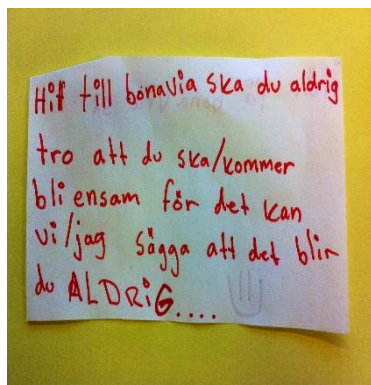 Hit till bonavia ska du aldrig
tro att du ska/kommer
bli ensam för det kan
vi/jag sägga att det blir
du ALDRiG....